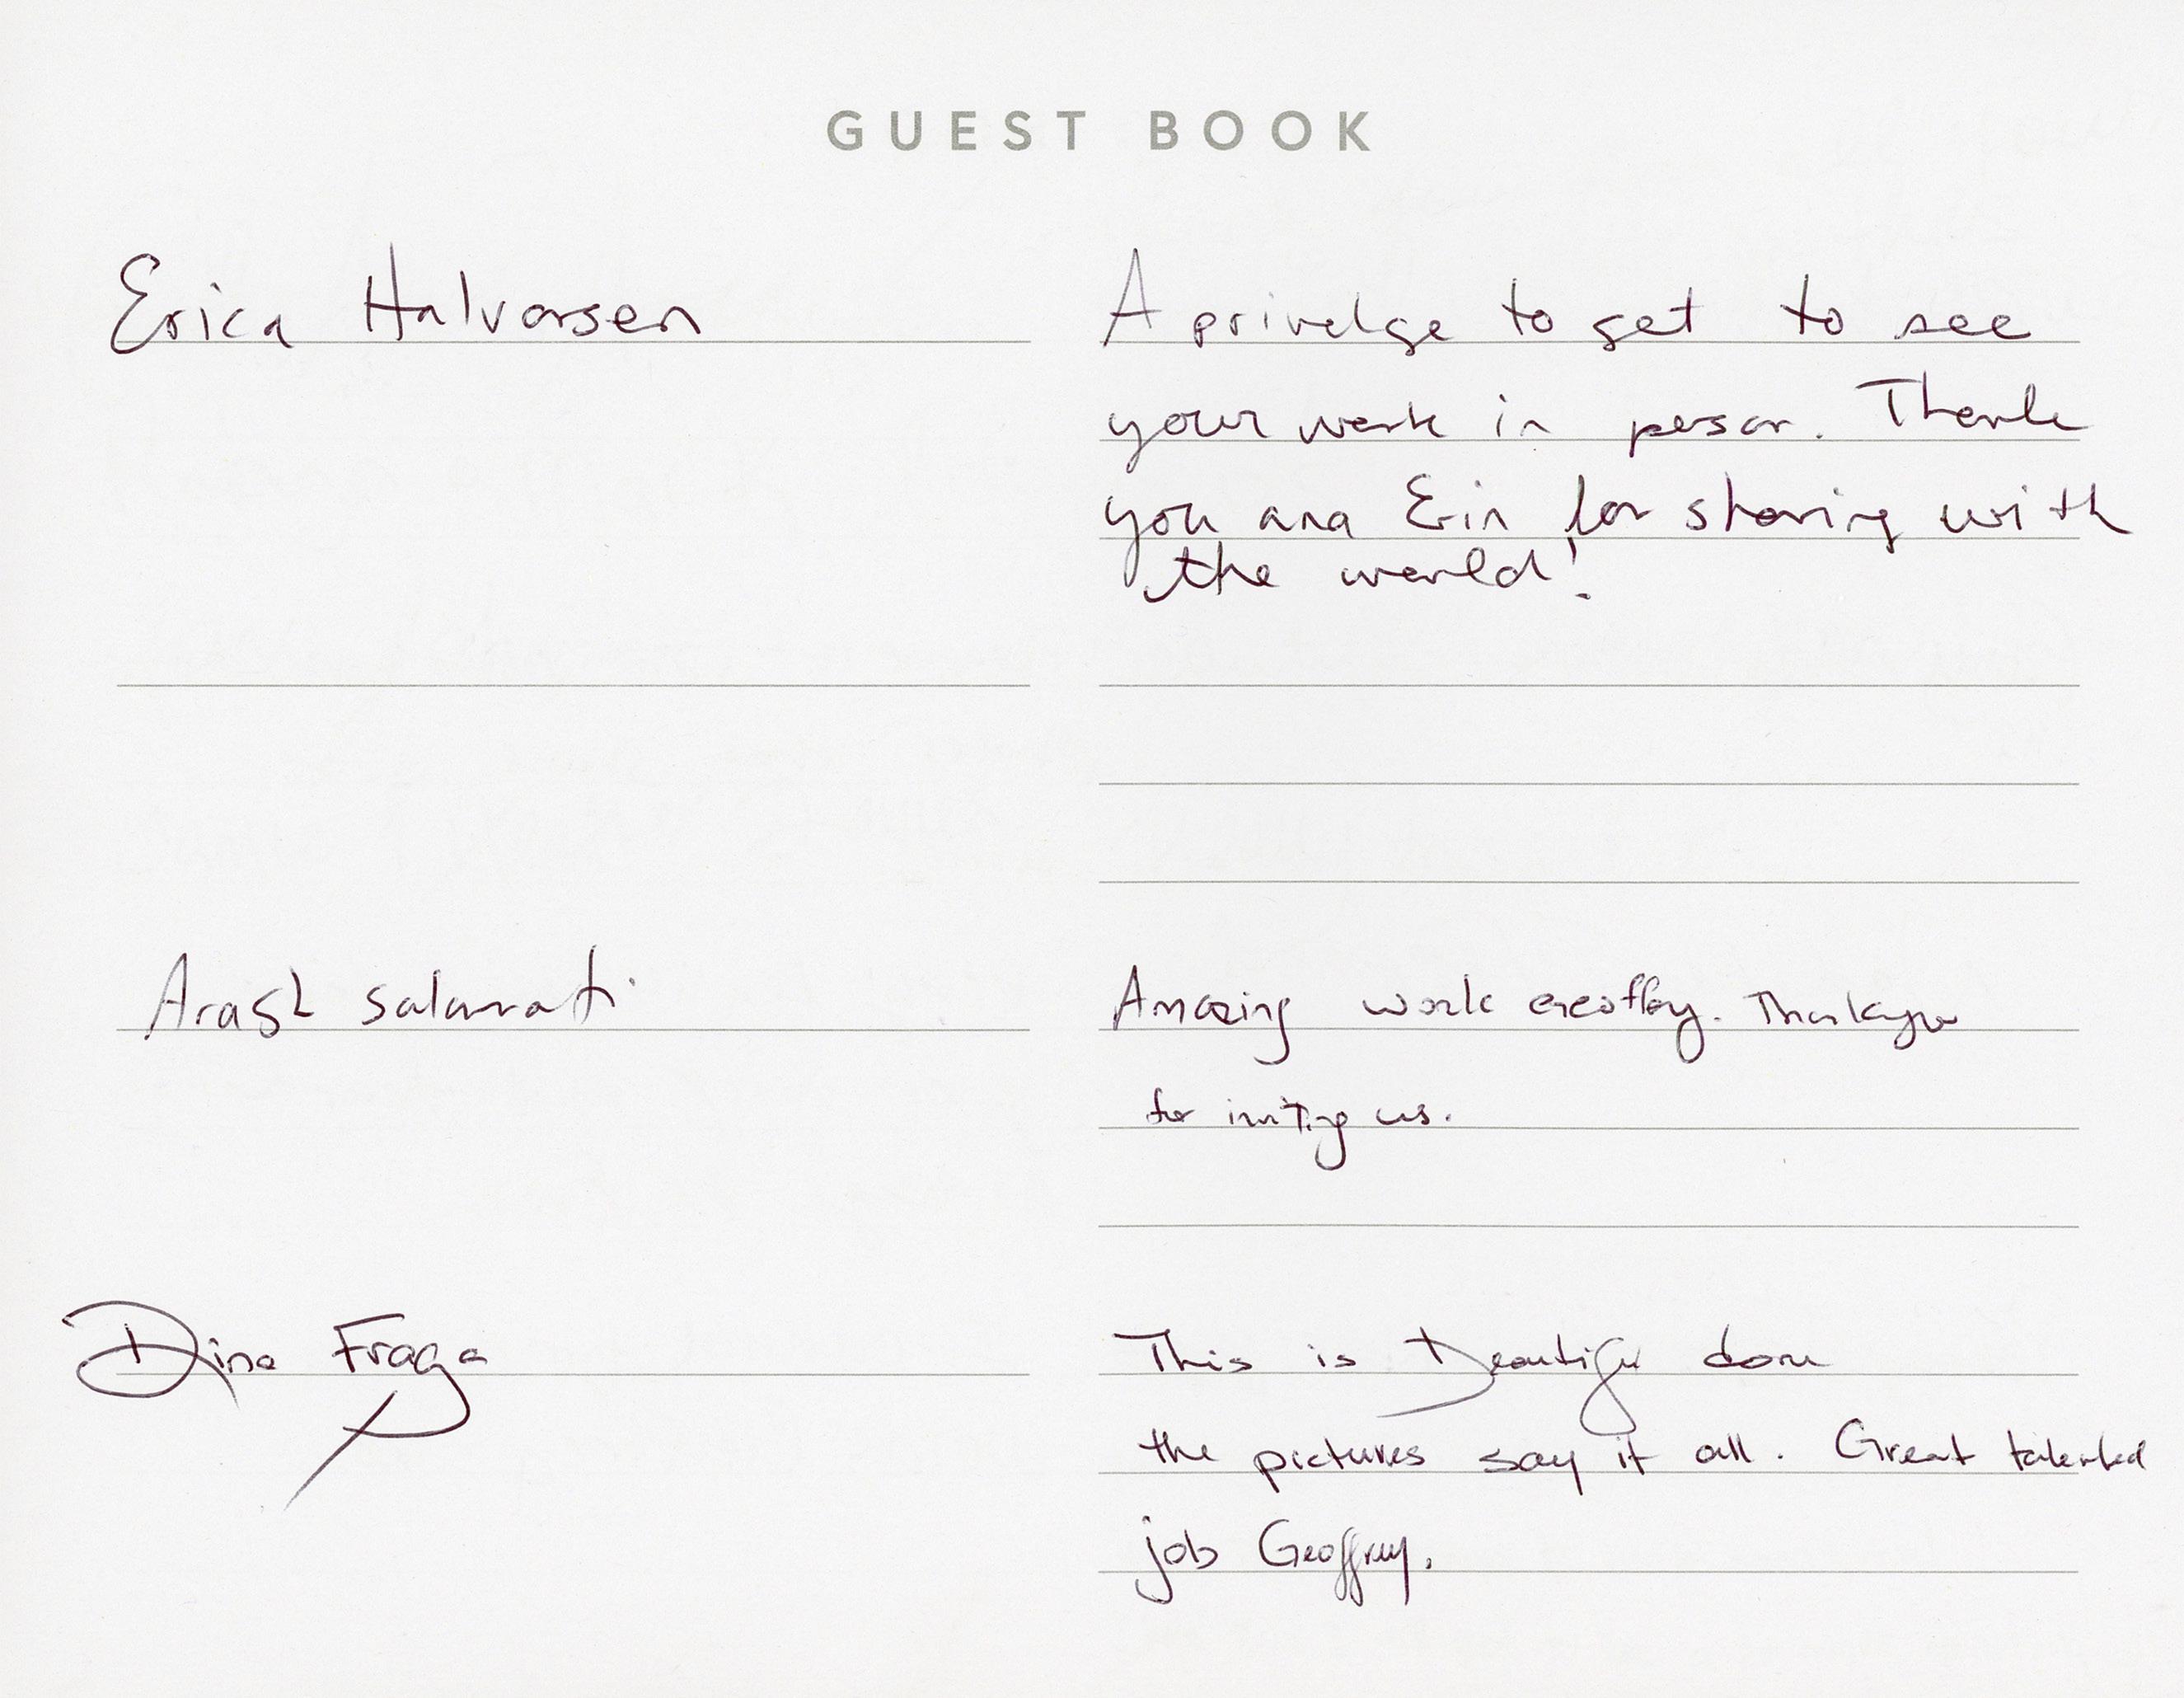 GUEST BOOK
Erica Halvorsen
A privelge to get to see
your work in person. Thank
you and Erin for sharing with
the world!
Arash salamati
Amazing work Geoffrey. Thankyou
for inviting us.
Dina Fraga
This is Beautiful done
the pictures say it all. Great talented
job Geoffrey.